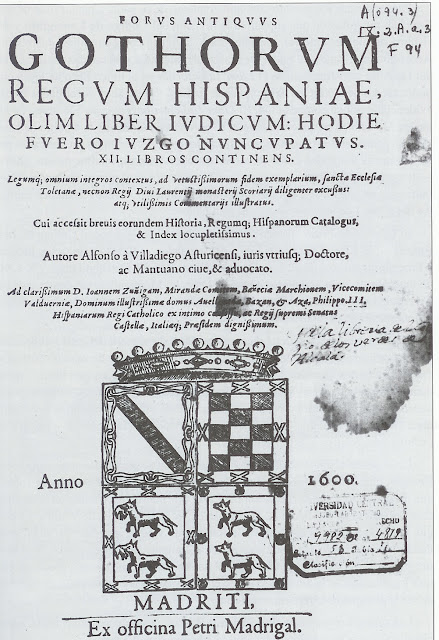 FORVS ANTIQVVS
A(094.3)
GOTHORVM
IX:2.A.a.3
F 94
REGVM HISPANIAE,
OLIM LIBER IVDICVM: HODIE
FVERO IVZGO NVNCVPATVS.
XII. LIBROS CONTINENS.
Legumq; omnium integros contextus, ad vetustissimorum fidem exemplarium, sanctæ Ecclesiæ
Toletanæ, necnon Regij Diui Laurentij monasterij Scoriarij diligenter excussus:
atq; vtilissimis Commentarijs illustratus.
Cui accessit breuis eorundem Historia, Regumq; Hispanorum Catalogus,
& Index locupletissimus.
Autore Alfonso à Villadiego Asturicensi, iuris vtriusq; Doctore,
ac Mantuano ciue, & aduocato.
Ad clarissimum D. Ioannem Zuñigam, Mirandæ Comitem, Bañeciæ Marchionem, Vicecomitem
Valduerniæ, Dominum illustrissimæ domus Bazan, & Aza, Philippo III.
Hispaniarum Regi Catholico ex intimo ac Regij supremi Senatus
Castellæ, Italiæq; Præsidem dignissimum.
Anno
1600.
VERSIDAD
MADRITI,
Ex officina Petri Madrigal.